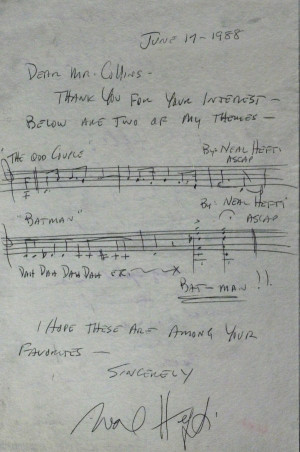 JUNE 17-1988
DEAR MR. COLLINS -
THANK YOU FOR YOUR INTEREST -
BELOW ARE TWO OF MY THEMES -
"THE ODD COUPLE"
By: NEAL HEFTI
ASCAP
"BATMAN"
By: NEAL HEFTI
ASCAP
DAH DAH DAH DAH ETC.
BAT-MAN !!
I HOPE THESE ARE AMONG YOUR
FAVORITES -
SINCERELY
Neal Hefti